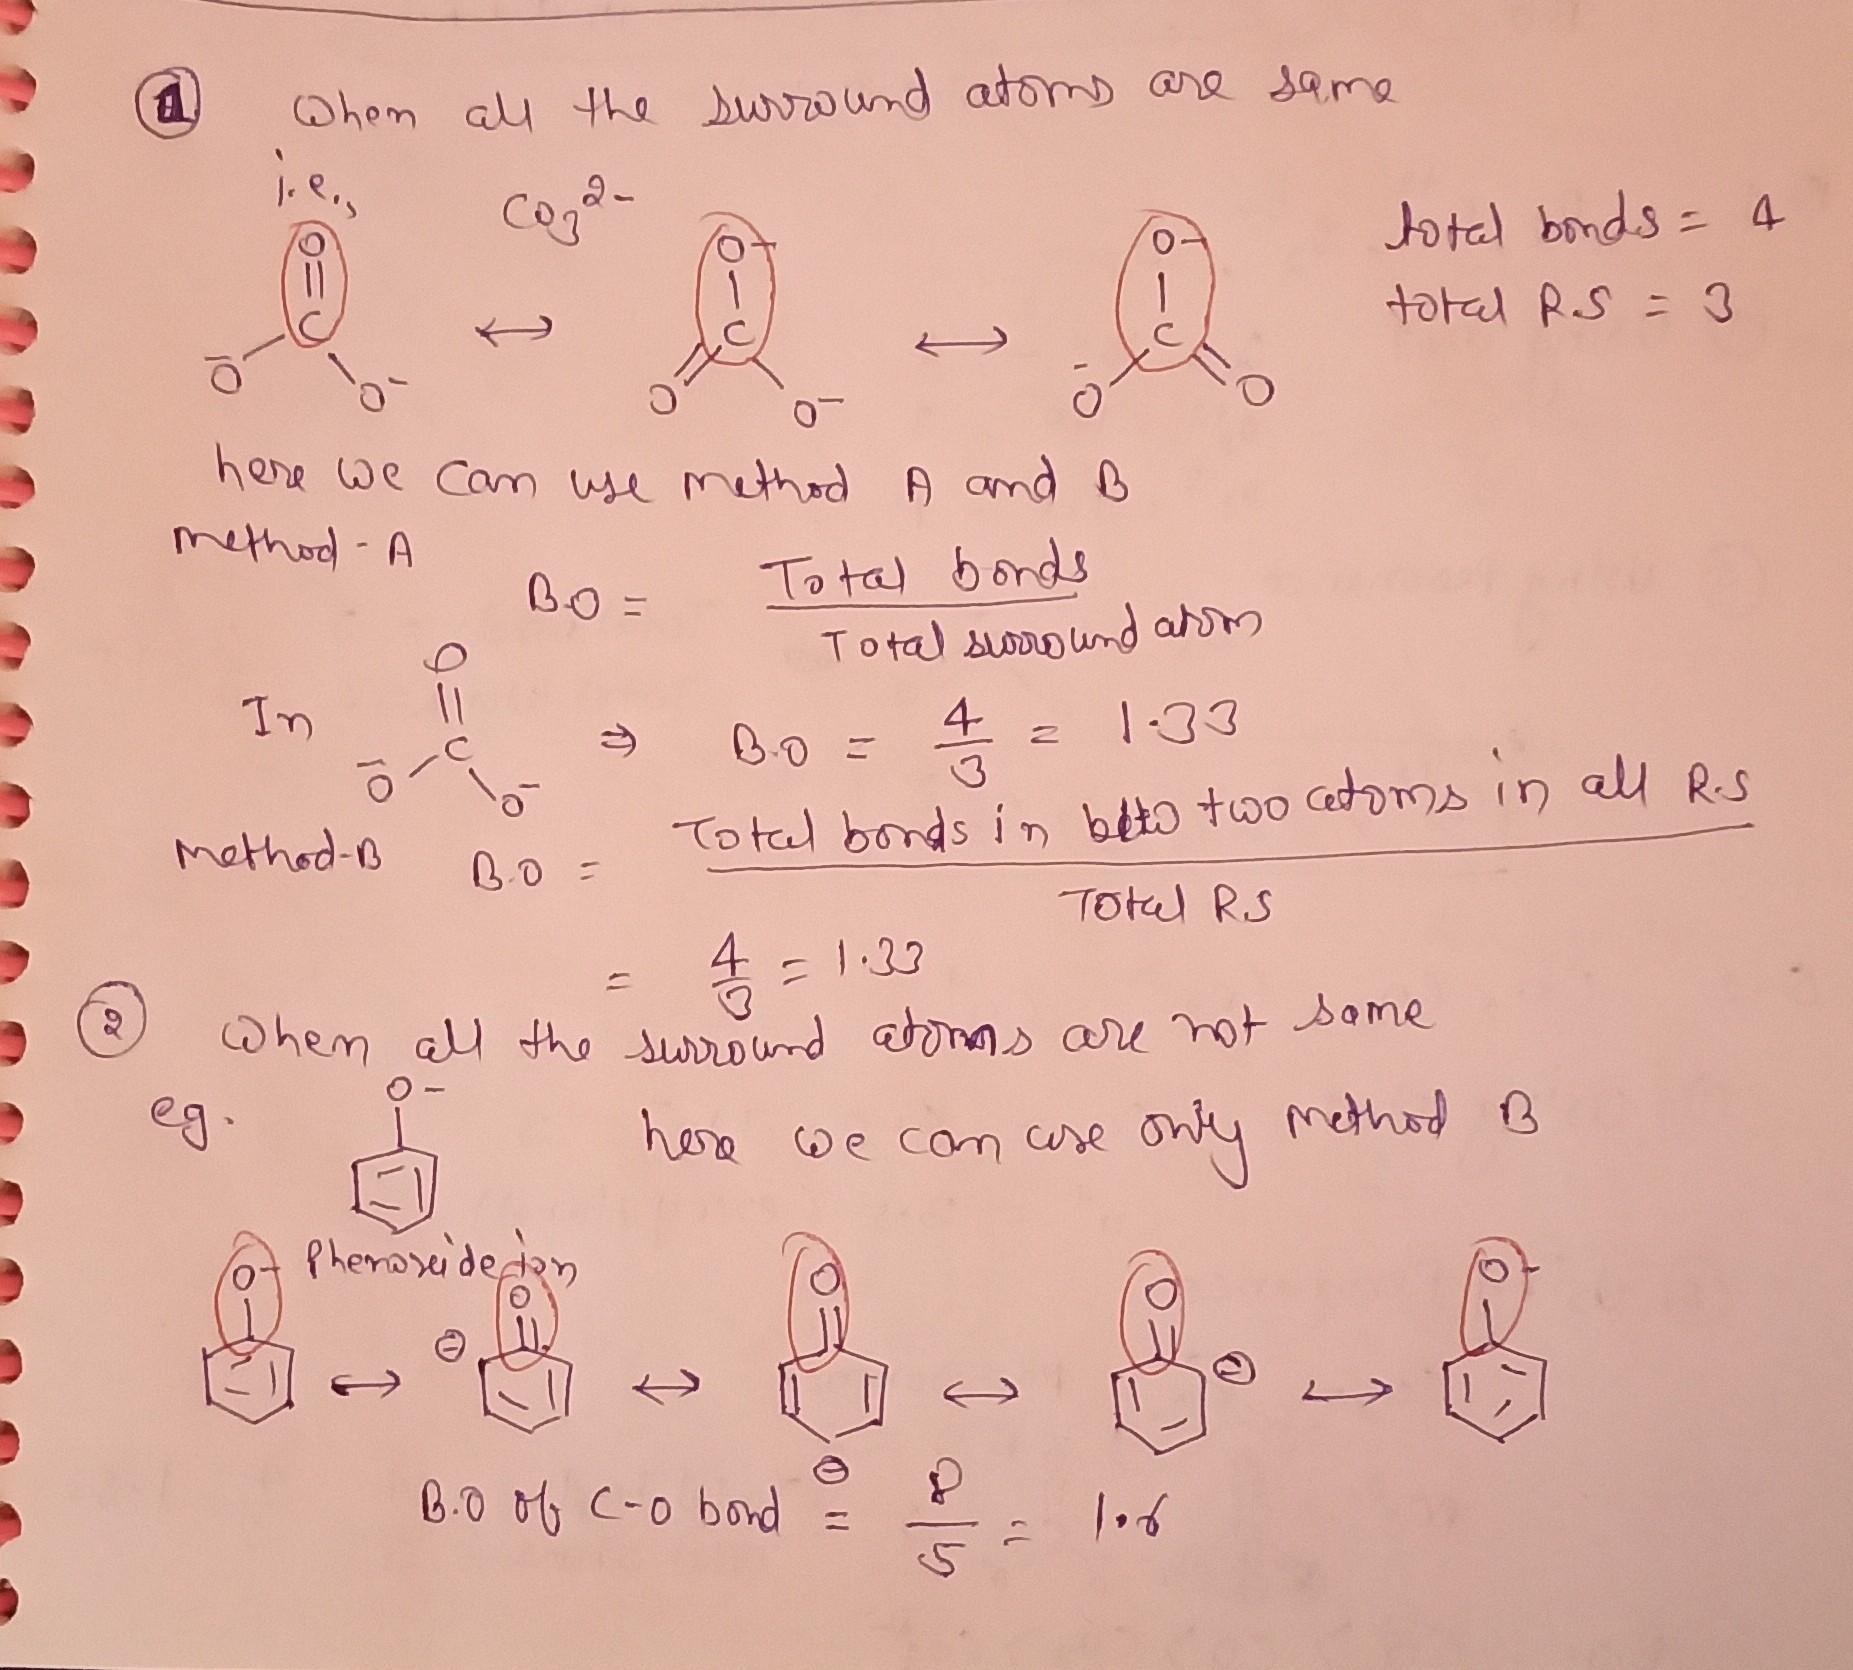 1 When all the surround atoms are same
i.e., CO3 2-
total bonds = 4
total R.S = 3
O O- O-
|| | |
C ↔ C ↔ C
-O O- O O- -O O
here we can use method A and B
method-A
B.O = Total bonds / Total surround atom
O
||
In C ⇒ B.O = 4/3 = 1.33
-O O-
method-B B.O = Total bonds in between two atoms in all R.S / Total R.S
= 4/3 = 1.33
2 When all the surround atoms are not same
eg. O- here we can use only method B
Phenoxide ion
O- O O O O-
⊖ ↔ ↔ ↔ ⊖ ↔
⊖
B.O of C-O bond = 8/5 = 1.6